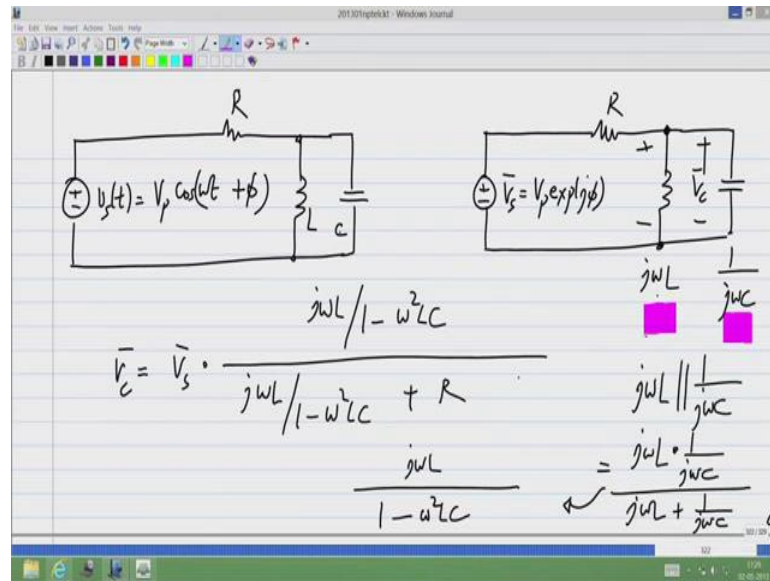 201301nptelckt - Windows Journal
File Edit View Insert Actions Tools Help
Page Width
B I
R
v_s(t) = V_p cos(ωt + ϕ)
L
C
R
V̄_s = V_p exp(jϕ)
+
V̄_c
-
jωL
1/jωC
V̄_c = V̄_s · (jωL/1-ω²LC) / (jωL/1-ω²LC + R)
jωL || 1/jωC
= (jωL · 1/jωC) / (jωL + 1/jωC)
jωL / (1 - ω²LC)
322